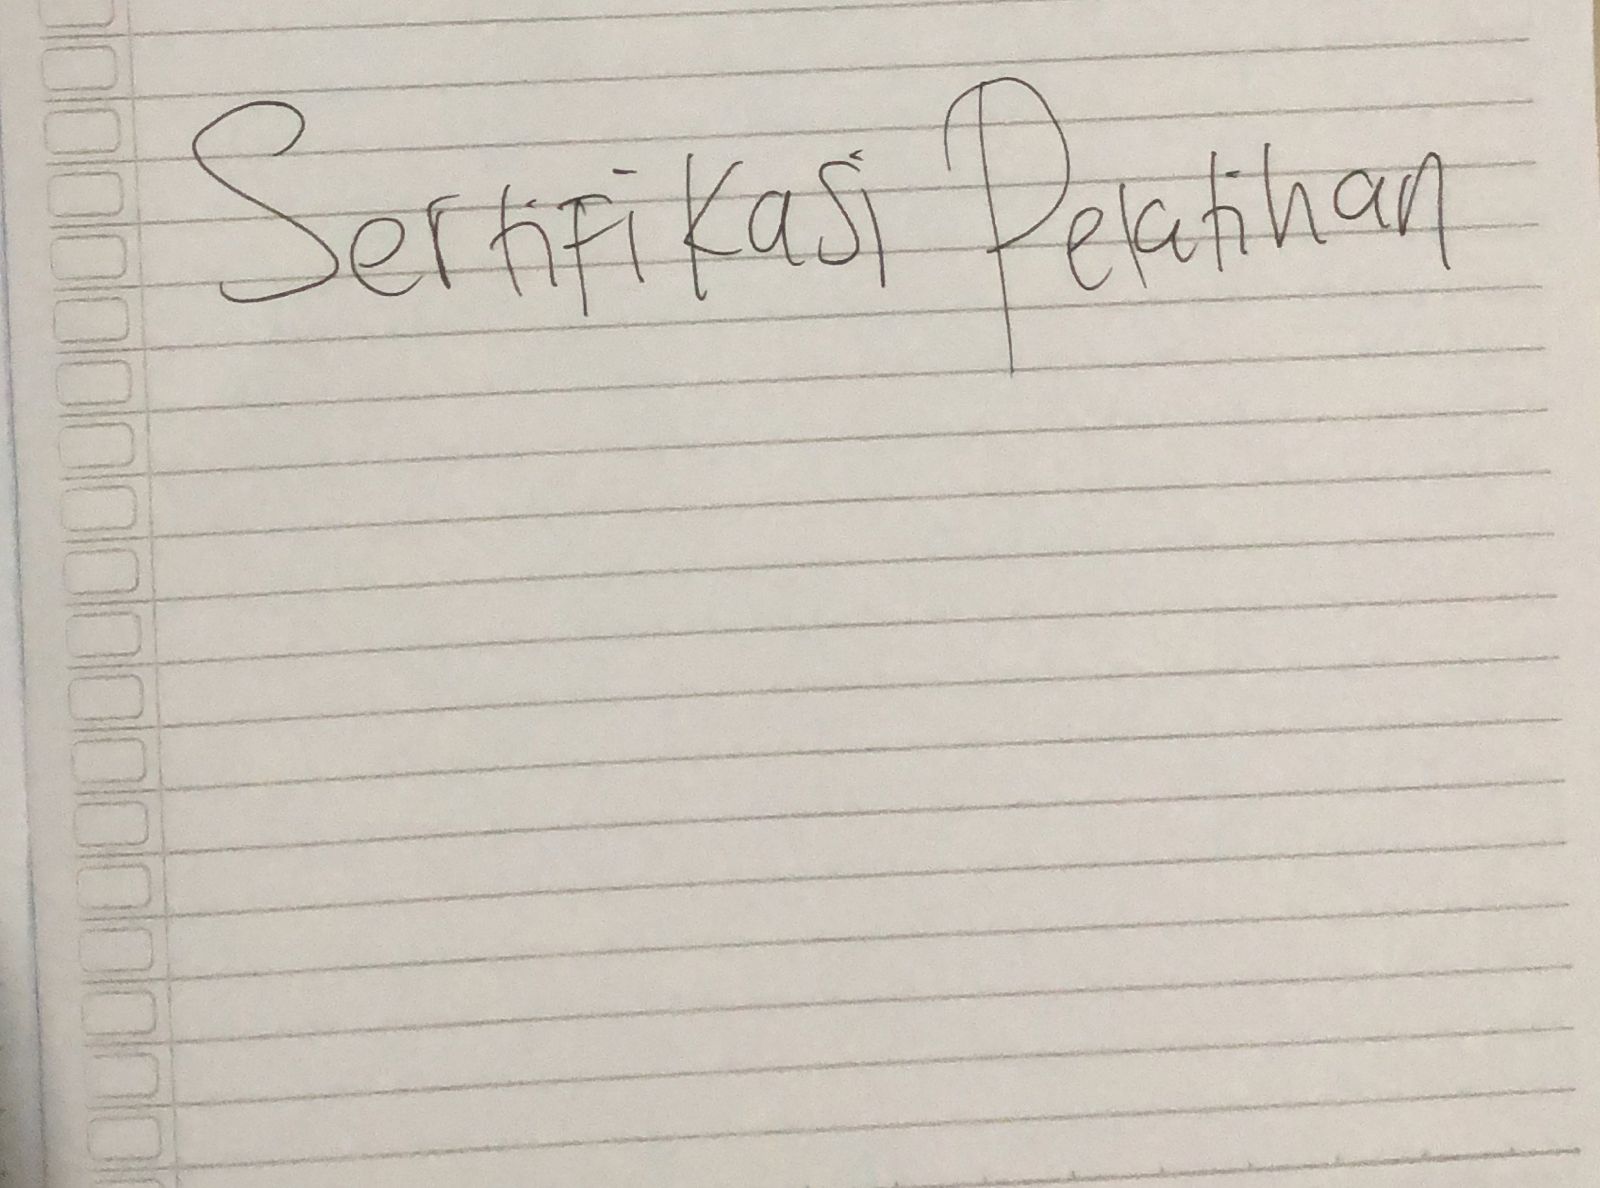 Sertifikasi Pelatihan